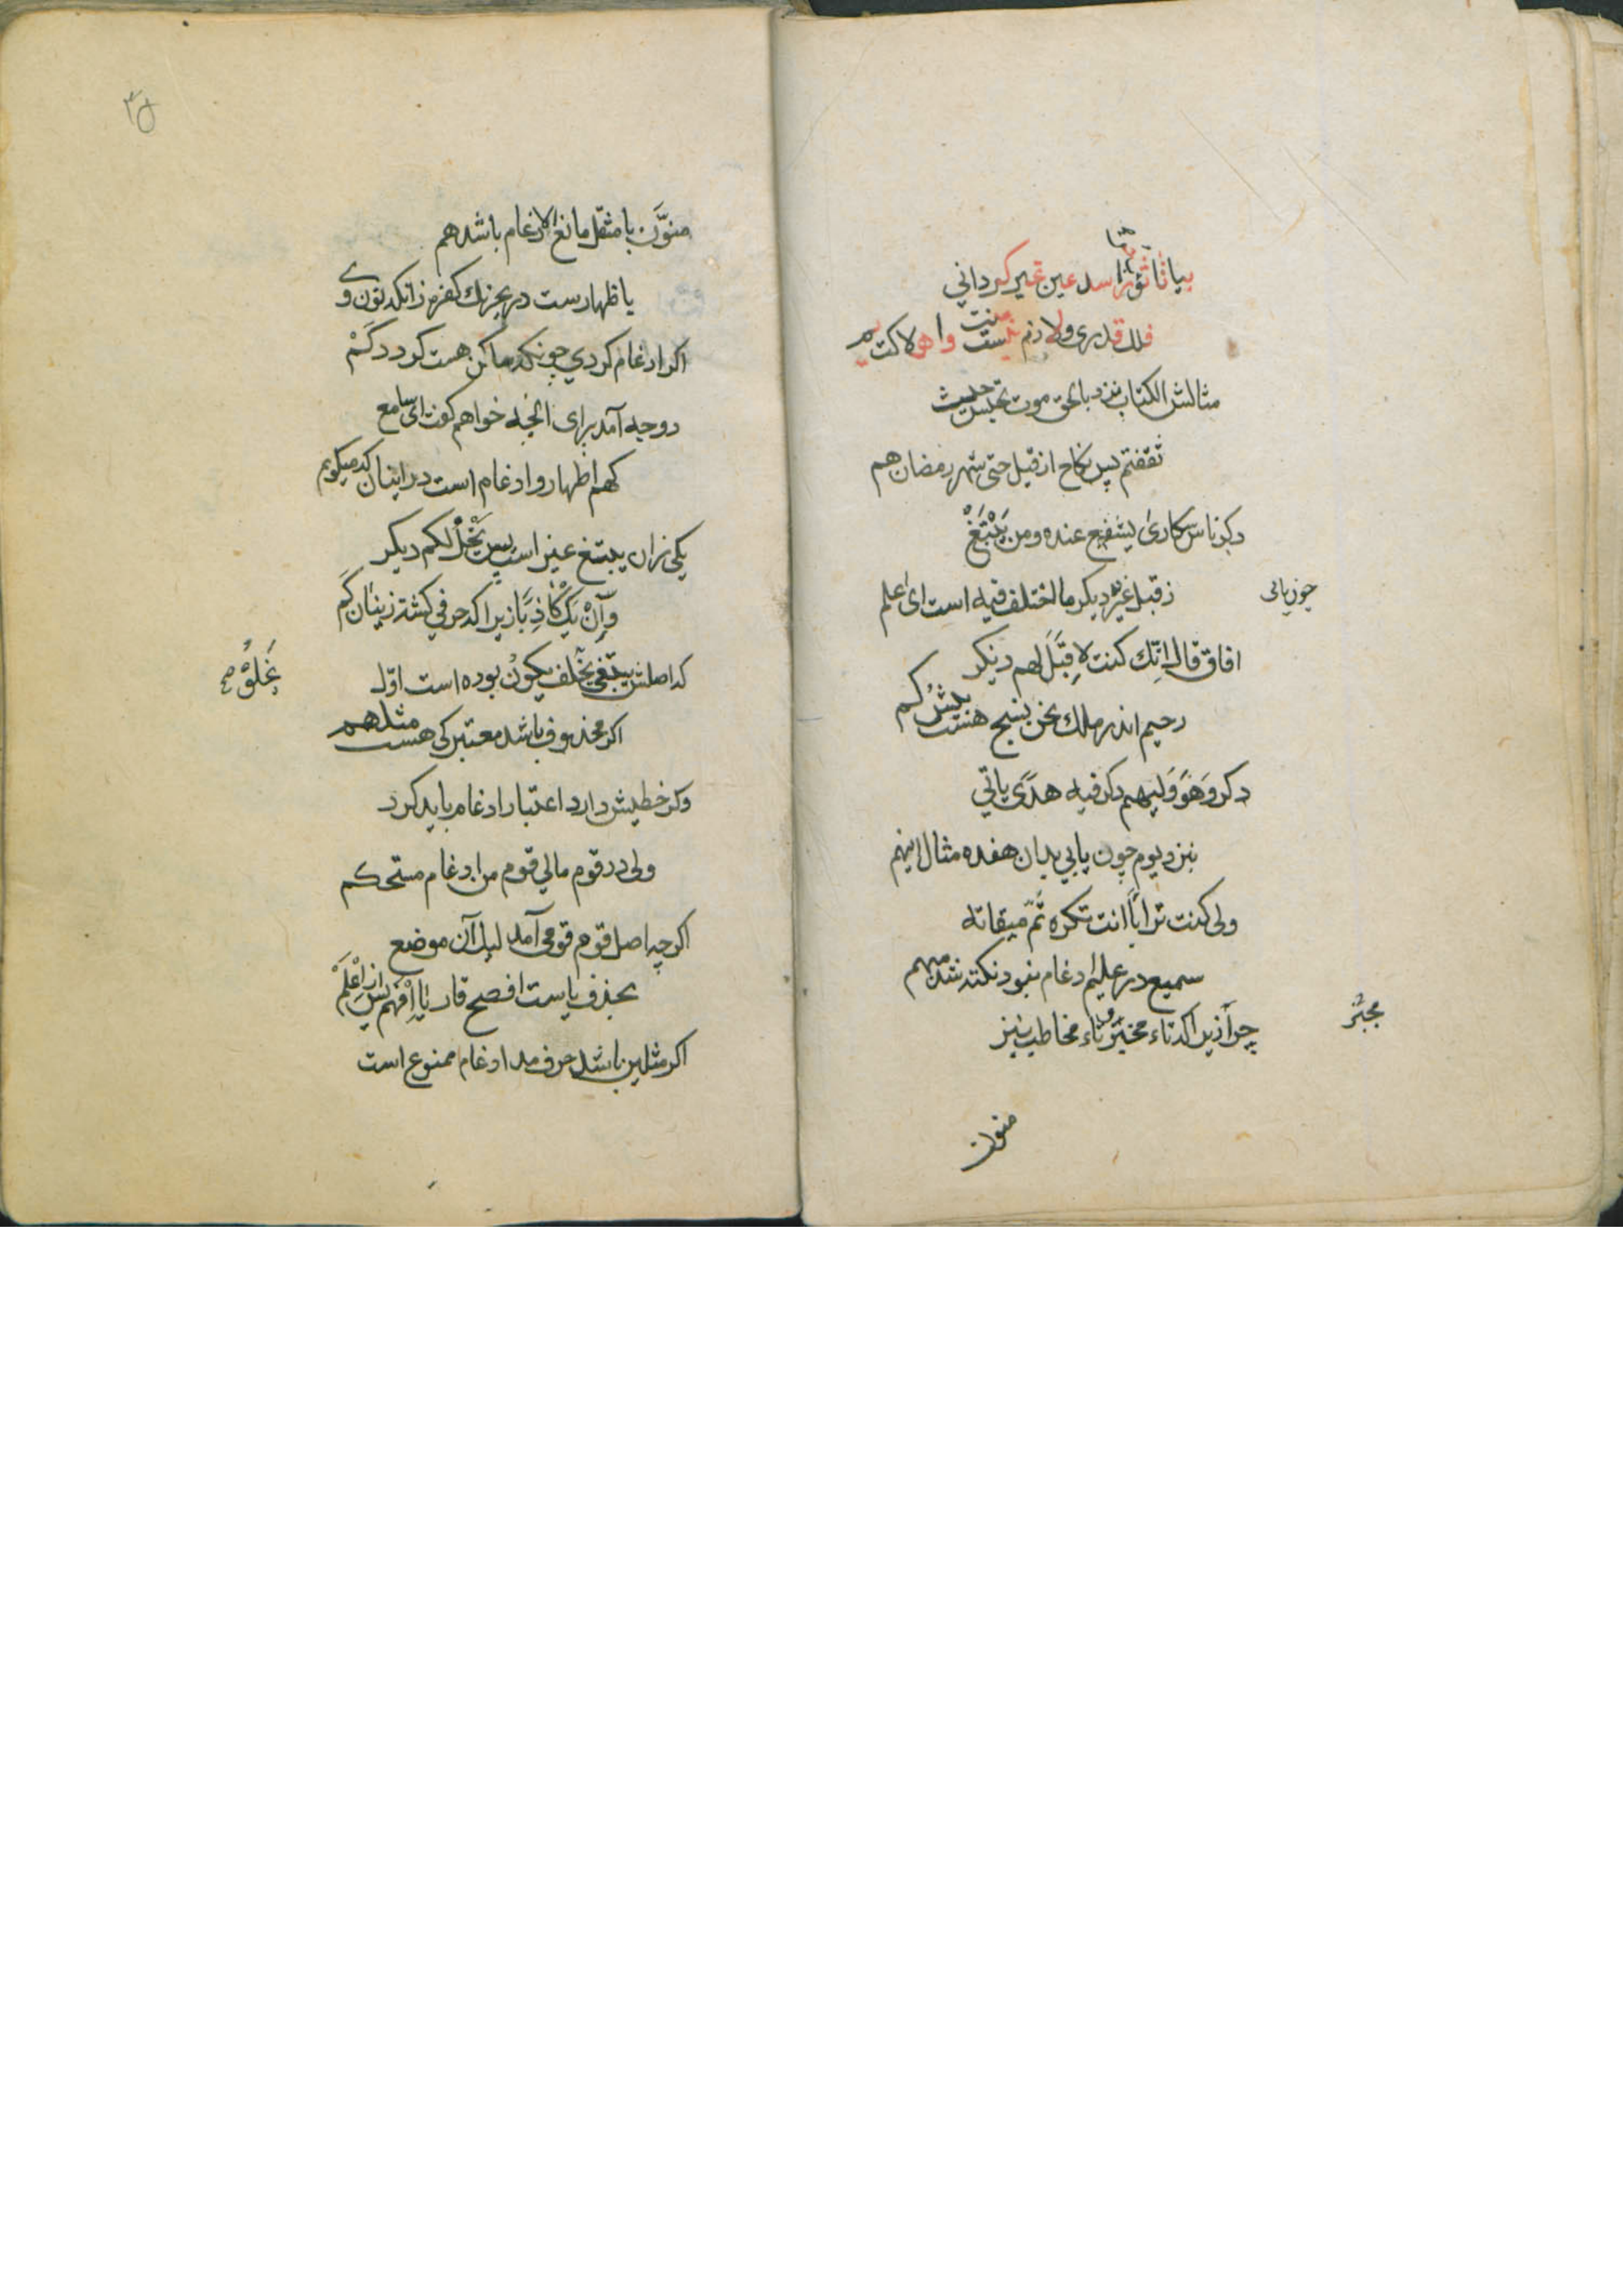 بیا تا ثو را سد عین غیر کردانی
فلك قدری ولا دنم نیست منت واهی لا کت
مثالش الکتاب نزد بالحق موت تحبس حیث
ثقفتم پس نکاح از قبل حتی شهر رمضان هم
دکر ناس سکاری یشفع عنده ومن یَبْتَغْ
ز قبل غیره دیکر ما اختلف فیه است ای علم
افاق قال اِنّك کنت لا قِبَلَ لهم دیکر
رحیم اندر ملك نحن نسبح هستت بلش کم
دکر وَهُوَ وَلیهم دکر فیه هدًی یاتی
نیز دیوم چون یابی بدان هفده مثال اینهم
ولی کنت تراباً انت تکره ثمّ میقاته
سمیع در علیم ادغام نبود نکته شد مبهم
چرا زیراکه تاء مخبر و تاء مخاطب نیز
مخبر
منون
منوَّن با مثقّل مانع الادغام باشد هم
یا ظهارست در یحزنك کفره زانکه نون وی
اکر ادغام کردی چونکه ساکن هست کردد کَمْ
دو جه آمد برای انچه خواهم کفت ای سامع
که هم اظهار و ادغام است در اینان که میکویم
یکی زان یبتغ غیر است پس یَخْلُ لکم دیکر
وَاِنْ یَكُ کاذِبًا زیراکه حرفی کشته زینان کم
که اصلش یبتغی یخلف یکون بوده است اوّل
یَخْلُوْ صح
اکر محذوف باشد معتبر کی هست مثلهم
وکر خطیش دارد اعتبار ادغام باید کرد
ولی در قوم مالی قوم من ادغام مستحکم
اکرچه اصل قوم قومی آمد لیك آن موضع
بحذف یاست افصح قاریا اِفْهَم پس از اَعْلَمْ
اکر مثلین باشد حرف مد ادغام ممنوع است